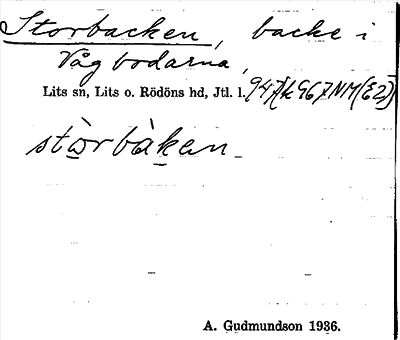 Storbacken, backe i
Vågbodarna,
Lits sn, Lits o. Rödöns hd, Jtl. l.
stòrbàken
A. Gudmundson 1936.